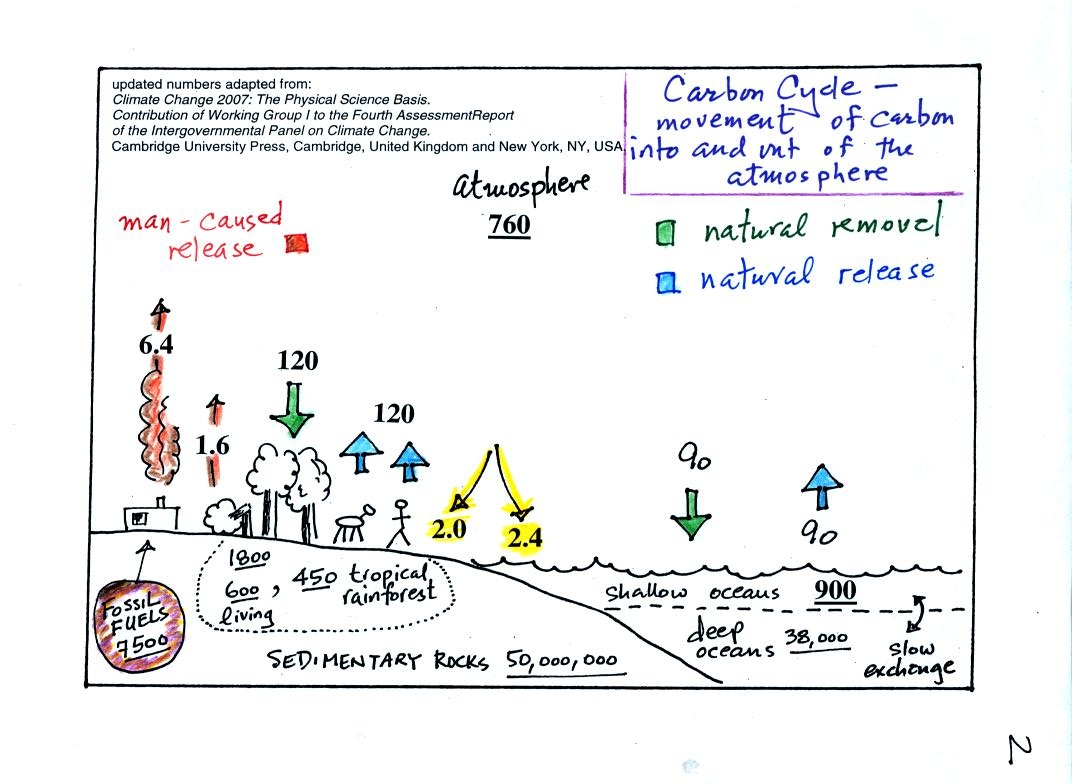 updated numbers adapted from:
Climate Change 2007: The Physical Science Basis.
Contribution of Working Group I to the Fourth AssessmentReport
of the Intergovernmental Panel on Climate Change.
Cambridge University Press, Cambridge, United Kingdom and New York, NY, USA
Carbon Cycle –
movement of carbon
into and out of the
atmosphere
atmosphere
760
man-caused
release
natural removal
natural release
6.4
1.6
120
120
2.0
2.4
90
90
FOSSIL
FUELS
7500
1800
600, 450 tropical
rainforest
living
SEDIMENTARY ROCKS 50,000,000
shallow oceans 900
deep
oceans 38,000
slow
exchange
2